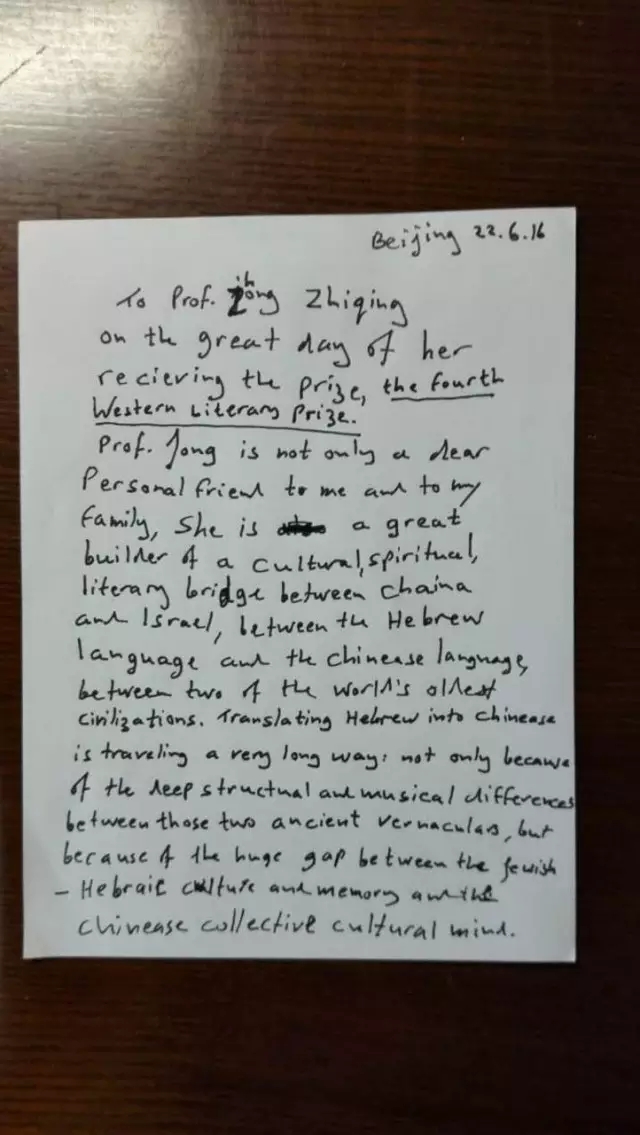 Beijing 22.6.16
To Prof. Zhong Zhiqing
on the great day of her
recieving the Prize, the fourth
Western Literary Prize.
Prof. Jong is not only a dear
Personal friend to me and to my
family, she is a great
builder of a cultural, spiritual,
literary bridge between chaina
and Israel, between the Hebrew
language and the chinease language,
between two of the world's oldest
civilizations. Translating Hebrew into chinease
is traveling a very long way: not only because
of the deep structual and musical differences
between those two ancient vernaculars, but
because of the huge gap between the Jewish
- Hebraic culture and memory and the
chinease collective cultural mind.